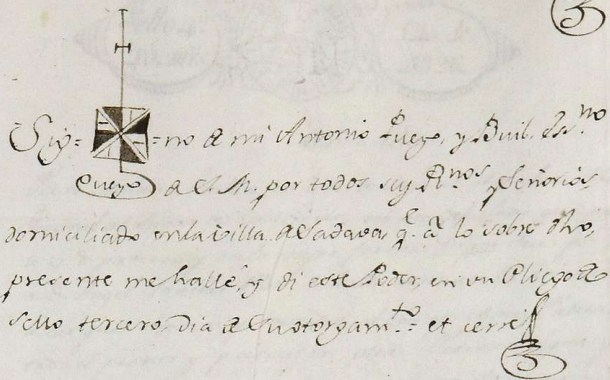 Sig= =no de mi Antonio Pueyo, y Buil, Ess.no
Pueyo de S. M. por todos sus R.nos y Señorios
domiciliado en la villa de Sadava, q.e a lo sobre dho,
presente me hallé, y di este Poder, en un Pliego de
sello tercero, dia de su otorgam.to = et cerre